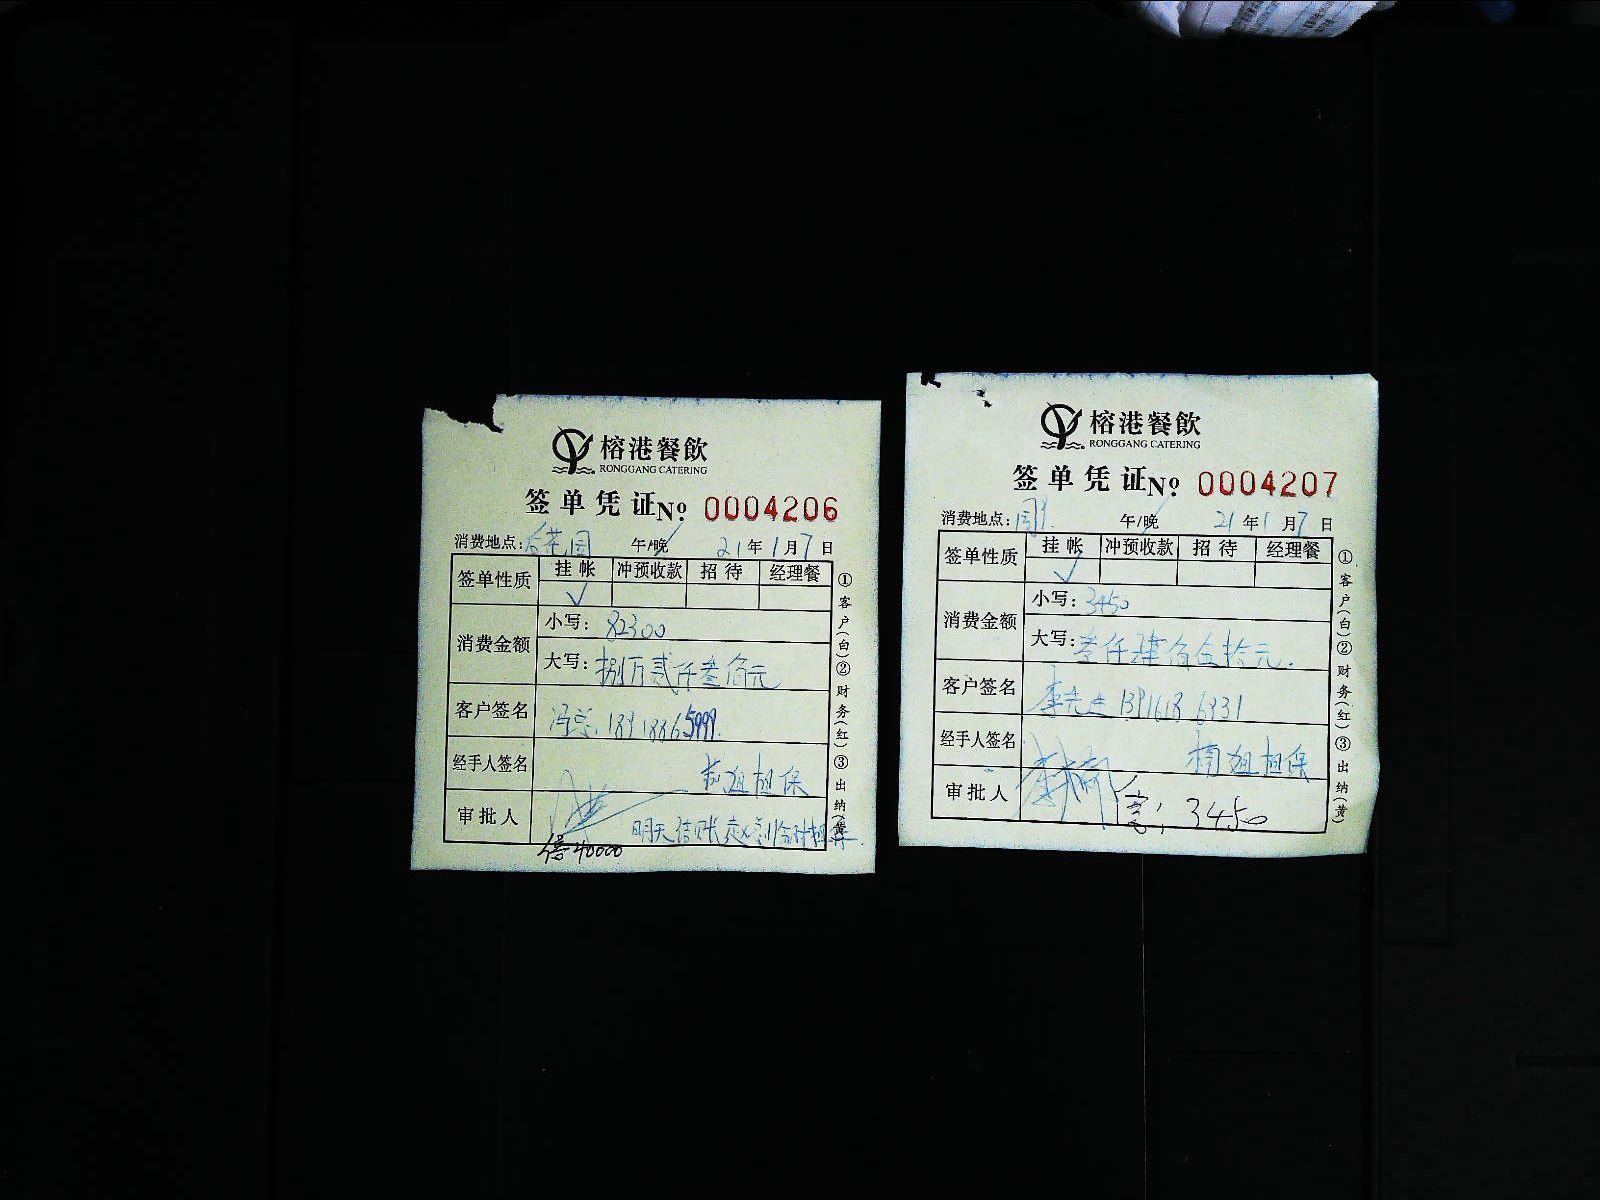 榕港餐飲
RONGGANG CATERING
签单凭证 No 0004206
消费地点: 花园 午/晚 21年1月7日
签单性质 挂帐 冲预收款 招待 经理餐
√
消费金额 小写: 82300
大写: 捌万贰仟叁佰元
客户签名 冯总. 18918865999.
经手人签名 姐担保
审批人
明天结账
40000
①客户(白)②财务(红)③出纳(黄)
榕港餐飲
RONGGANG CATERING
签单凭证 No 0004207
消费地点: 午/晚 21年1月7日
签单性质 挂帐 冲预收款 招待 经理餐
√
消费金额 小写: 3450
大写: 叁仟肆佰伍拾元.
客户签名 李先生 13916186931
经手人签名 姐担保
审批人 3450
①客户(白)②财务(红)③出纳(黄)